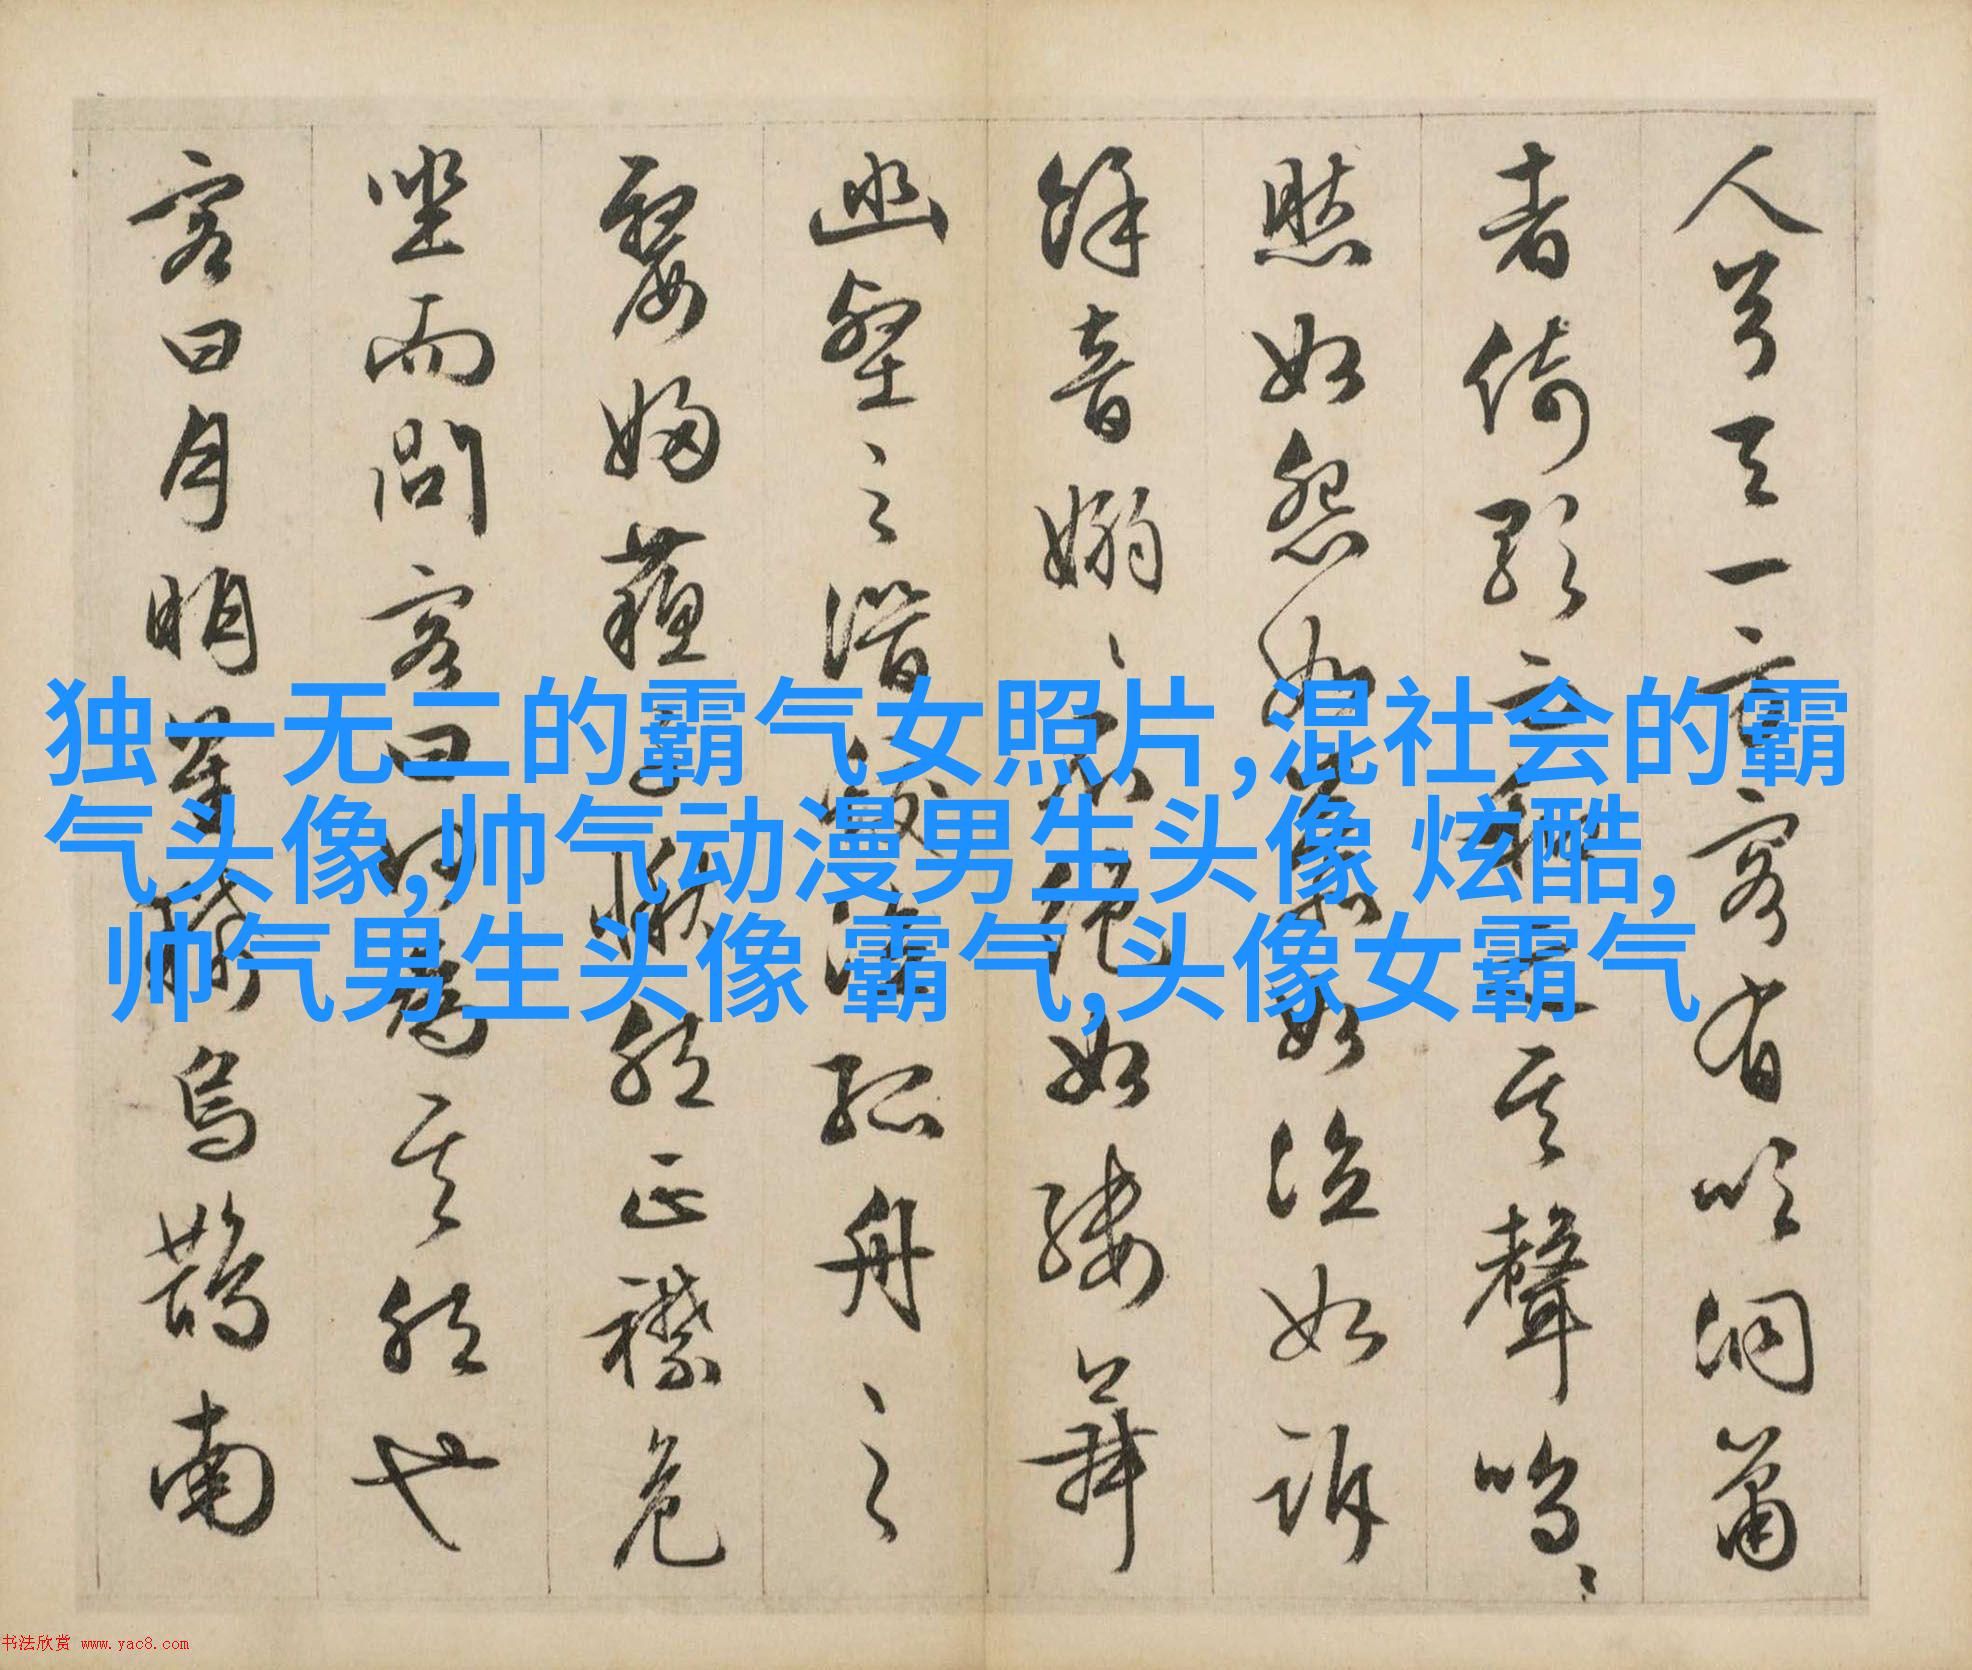 人兮天一方客有吹洞蕭
者倚歌而和之其聲嗚〻
然如怨如慕如泣如訴
餘音嫋〻不絕如縷舞
幽壑之潛蛟泣孤舟之
嫠婦蘓子愀然正襟危
坐而問客曰何為其然也
客曰月明星稀烏鵲南
独一无二的霸气女照片,混社会的霸
气头像,帅气动漫男生头像 炫酷,
帅气男生头像 霸气,头像女霸气
书法欣赏 www.yac8.com